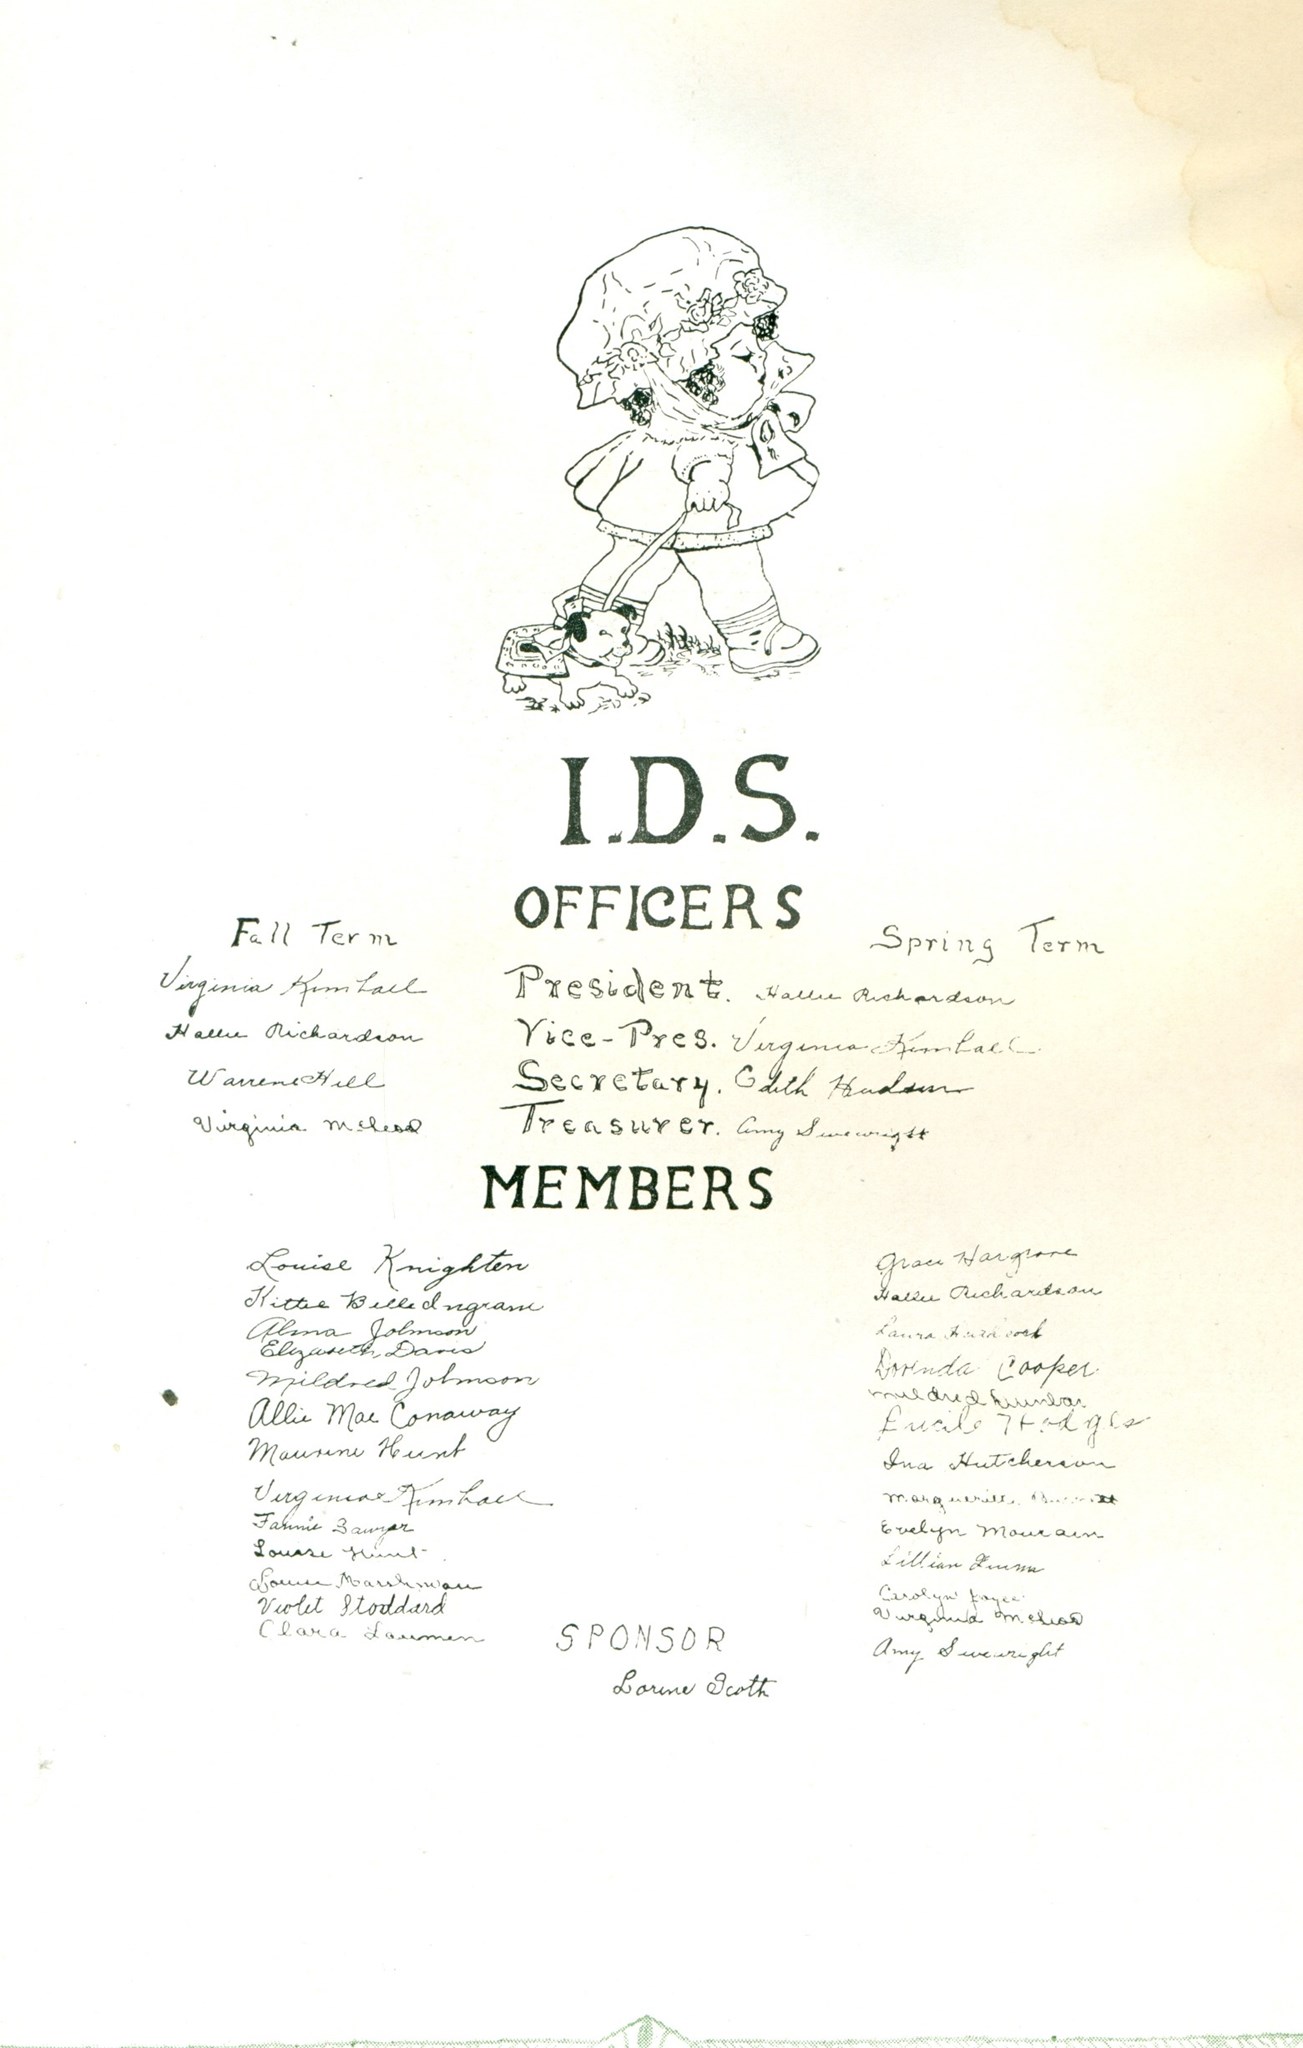 I.D.S.
OFFICERS
Fall Term
Spring Term
Virginia Kimball President. Hallie Richardson
Hallie Richardson Vice-Pres. Virginia Kimball
Warrene Hill Secretary. Edith Hudson
Virginia McLeod Treasurer. Amy Sivewright
MEMBERS
Louise Knighten
Kittie Billie Ingram
Alma Johnson
Elizabeth Davis
Mildred Johnson
Allie Mae Conaway
Maurine Hunt
Virginia Kimball
Fannie Sawyer
Louise Hunt
Louise
Violet Stoddard
Clara
Grace Hargrove
Hallie Richardson
Laura
Dorinda Cooper
Mildred Dunbar
Lucile Hodges
Ina Hutcherson
Marguerite
Evelyn
Lillian
Carolyn Joyce
Virginia McLeod
Amy Sivewright
SPONSOR
Lorine Scoth